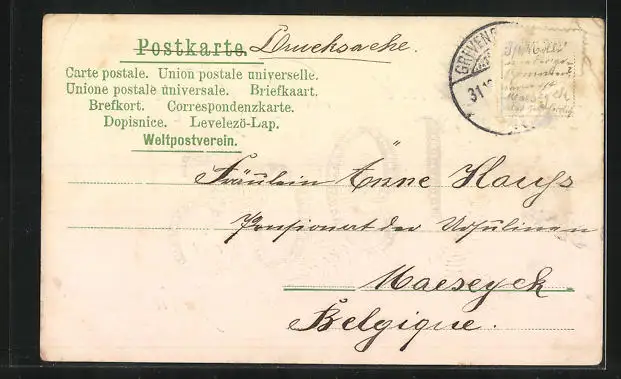 Postkarte. Drucksache.
Carte postale. Union postale universelle.
Unione postale universale. Briefkaart.
Brefkort. Correspondenzkarte.
Dopisnice. Levelező-Lap.
Weltpostverein.
GRIVEN
31
Fräulein Änne
Pensionert der Ursulinen
Maeseyck
Belgique.